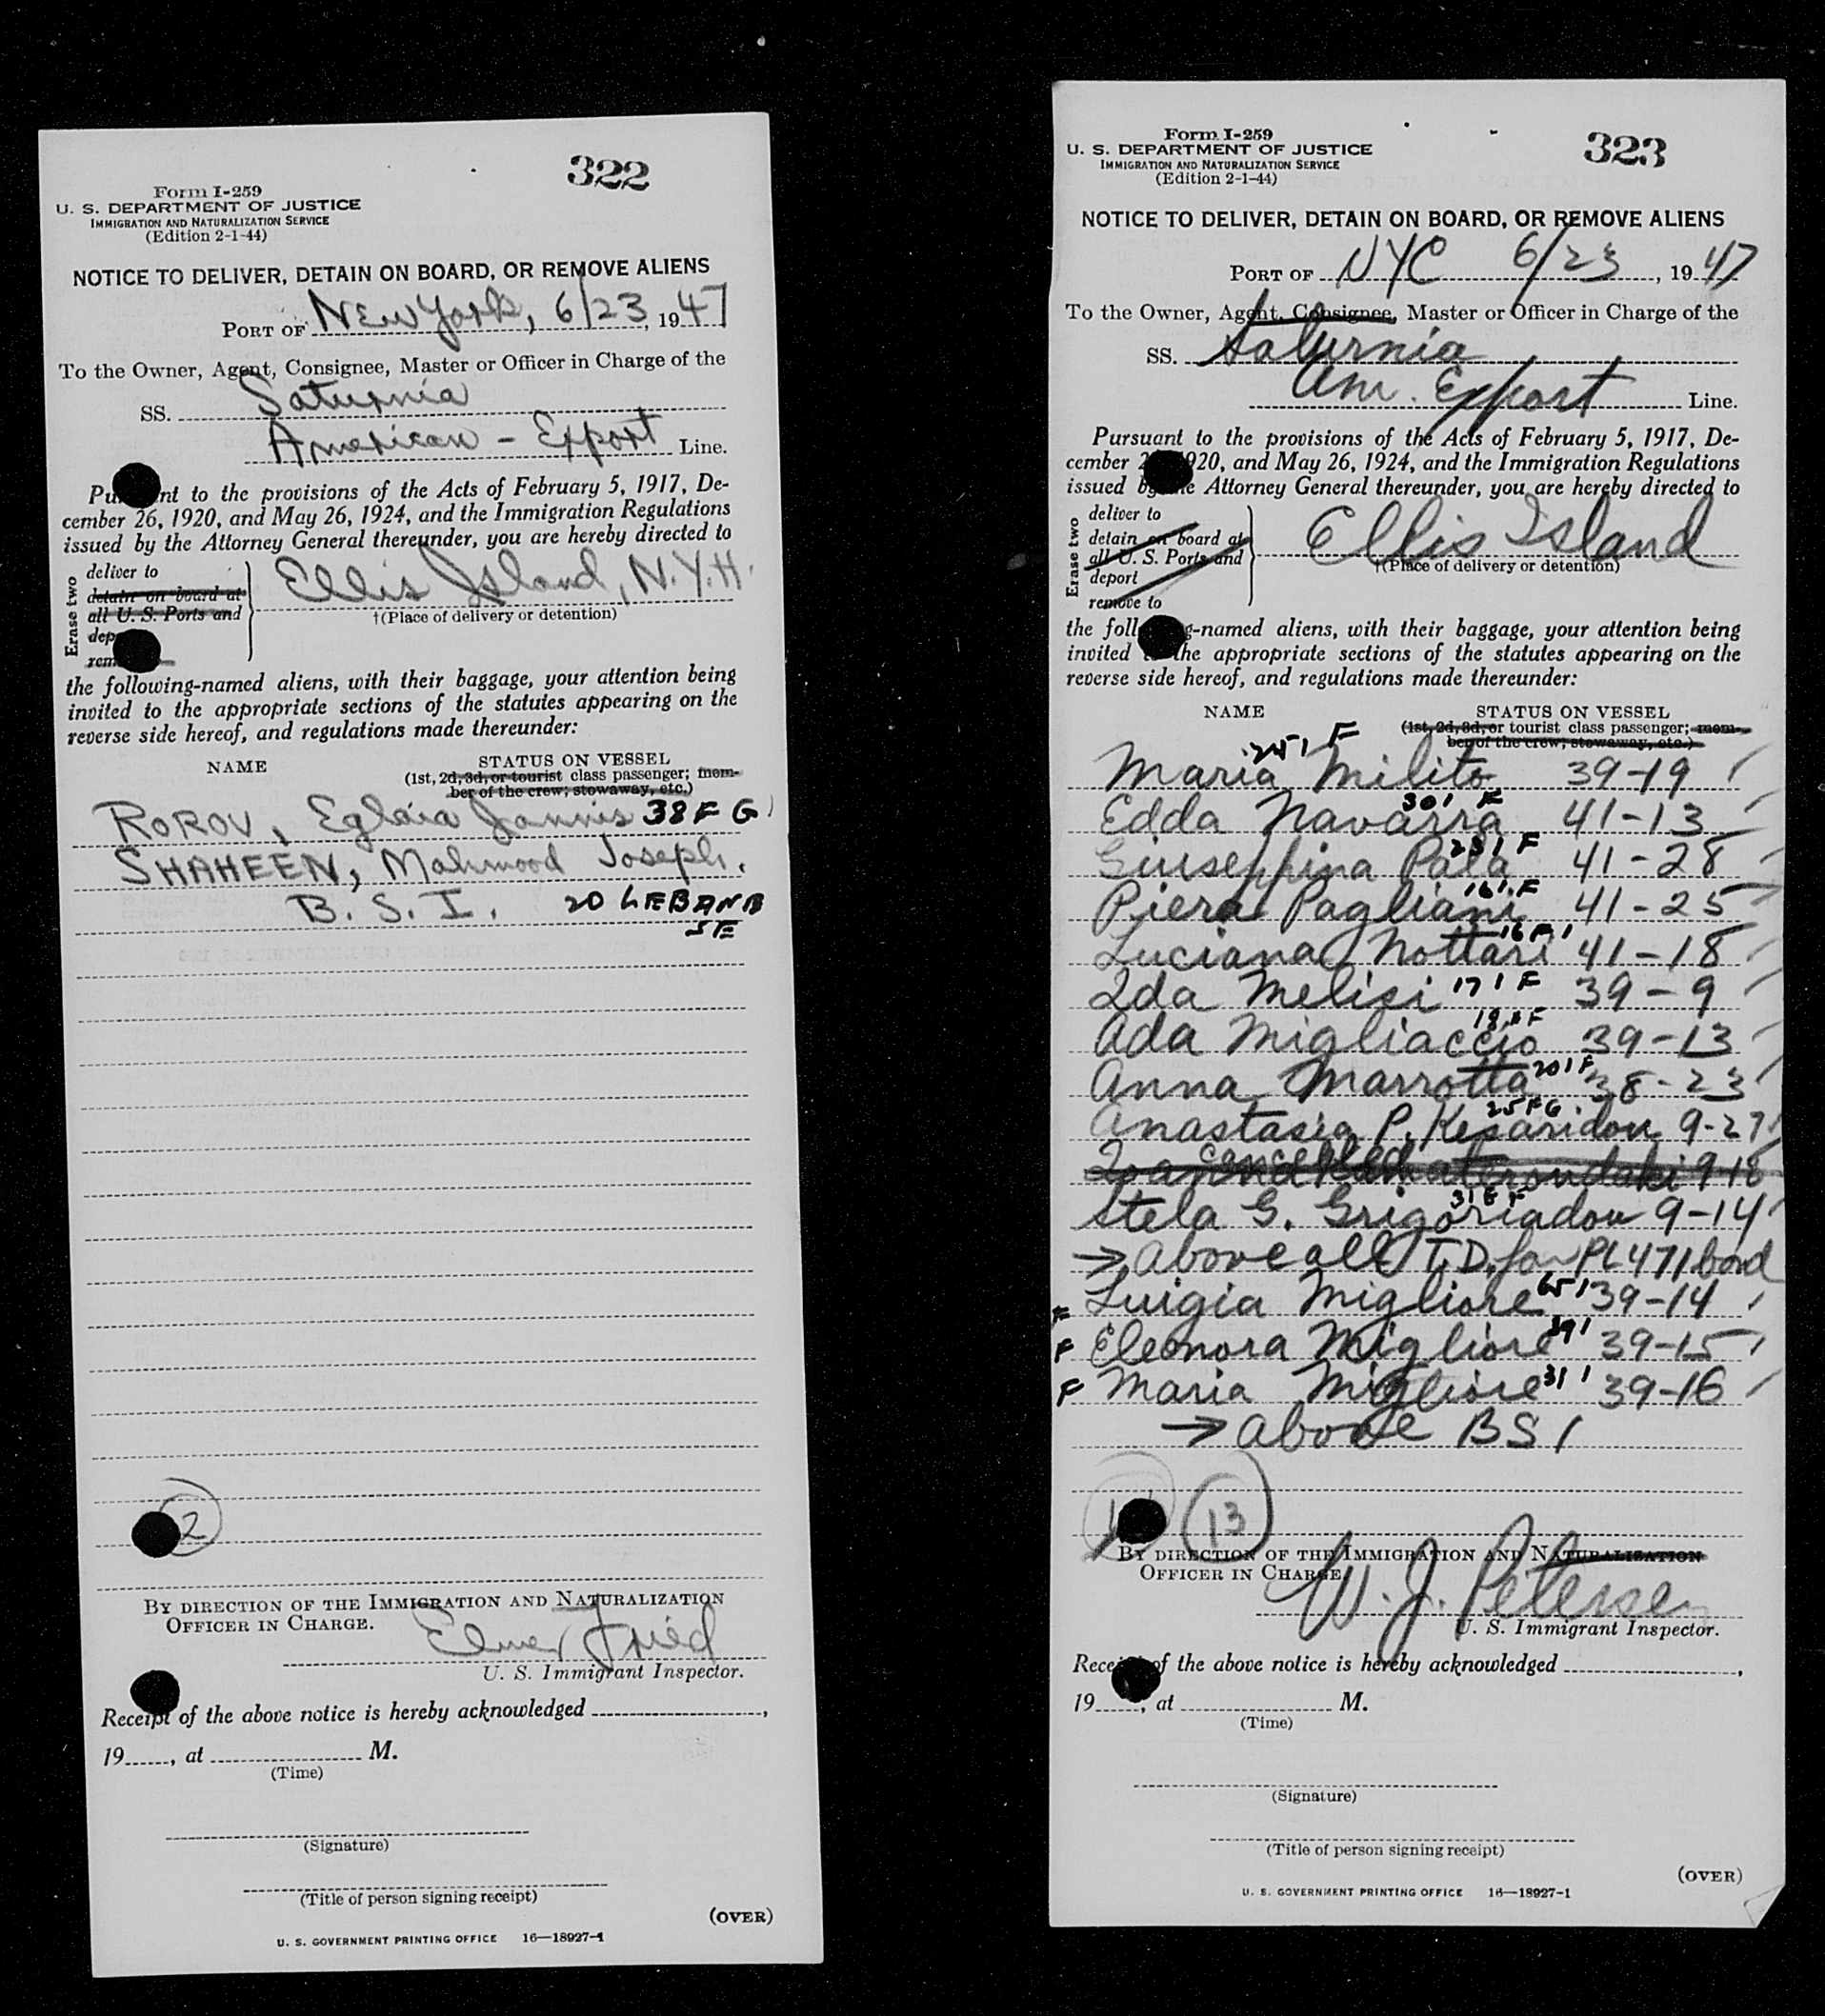 322
Form I-259
U. S. DEPARTMENT OF JUSTICE
IMMIGRATION AND NATURALIZATION SERVICE
(Edition 2-1-44)
NOTICE TO DELIVER, DETAIN ON BOARD, OR REMOVE ALIENS
PORT OF New York, 6/23, 1947
To the Owner, Agent, Consignee, Master or Officer in Charge of the
SS. Saturnia
American - Export Line.
Pu nt to the provisions of the Acts of February 5, 1917, De-
cember 26, 1920, and May 26, 1924, and the Immigration Regulations
issued by the Attorney General thereunder, you are hereby directed to
Erase two
deliver to
detain on board at
all U. S. Ports and
dep
rem
Ellis Island, N.Y.H.
†(Place of delivery or detention)
the following-named aliens, with their baggage, your attention being
invited to the appropriate sections of the statutes appearing on the
reverse side hereof, and regulations made thereunder:
NAME STATUS ON VESSEL
(1st, 2d, 3d, or tourist class passenger; mem-
ber of the crew; stowaway, etc.)
ROROV, Eglaia Jannis 38 F G
SHAHEEN, Mahmood Joseph.
B. S. I. 20 LEBANESE
2
BY DIRECTION OF THE IMMIGRATION AND NATURALIZATION
OFFICER IN CHARGE.
Elmer Fried
U. S. Immigrant Inspector.
Receipt of the above notice is hereby acknowledged ,
19 , at M.
(Time)
(Signature)
(Title of person signing receipt)
(OVER)
U. S. GOVERNMENT PRINTING OFFICE 16—18927-1
323
Form I-259
U. S. DEPARTMENT OF JUSTICE
IMMIGRATION AND NATURALIZATION SERVICE
(Edition 2-1-44)
NOTICE TO DELIVER, DETAIN ON BOARD, OR REMOVE ALIENS
PORT OF NYC 6/23, 1947
To the Owner, Agent, Consignee, Master or Officer in Charge of the
SS. Saturnia
Am. Export Line.
Pursuant to the provisions of the Acts of February 5, 1917, De-
cember 2 920, and May 26, 1924, and the Immigration Regulations
issued by the Attorney General thereunder, you are hereby directed to
Erase two
deliver to
detain on board at
all U. S. Ports and
deport
remove to
Ellis Island
†(Place of delivery or detention)
the foll g-named aliens, with their baggage, your attention being
invited the appropriate sections of the statutes appearing on the
reverse side hereof, and regulations made thereunder:
NAME STATUS ON VESSEL
(1st, 2d, 3d, or tourist class passenger; mem-
ber of the crew; stowaway, etc.)
Maria Milito 25 I F 39-19
Edda Navarra 30 I F 41-13
Giuseppina Pala 25 I F 41-28
Piera Pagliani 16 I F 41-25
Luciana Nottari 16 F I 41-18
Ida Melisi 17 I F 39-9
Ada Migliaccio 18 I F 39-13
Anna Marrotta 20 I F 38-23
Anastasia P. Kesaridou 25 F G 9-27
cancelled 9-18
Stela G. Grigoriadou 31 G F 9-14
→ above all T.D. for PL 471 bond
F Luigia Migliore 65 I 39-14
F Eleonora Migliore 39 I 39-15
F Maria Migliore 31 I 39-16
→ above BSI
13
BY DIRECTION OF THE IMMIGRATION AND NATURALIZATION
OFFICER IN CHARGE
W. J. Petersen
U. S. Immigrant Inspector.
Recei of the above notice is hereby acknowledged ,
19 , at M.
(Time)
(Signature)
(Title of person signing receipt)
(OVER)
U. S. GOVERNMENT PRINTING OFFICE 16—18927-1